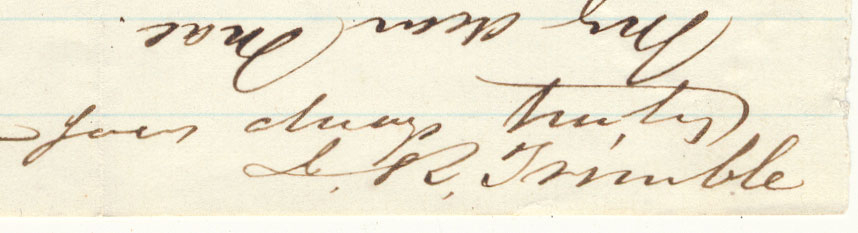 My dear Mac.
Yours always truly
I. R. Trimble